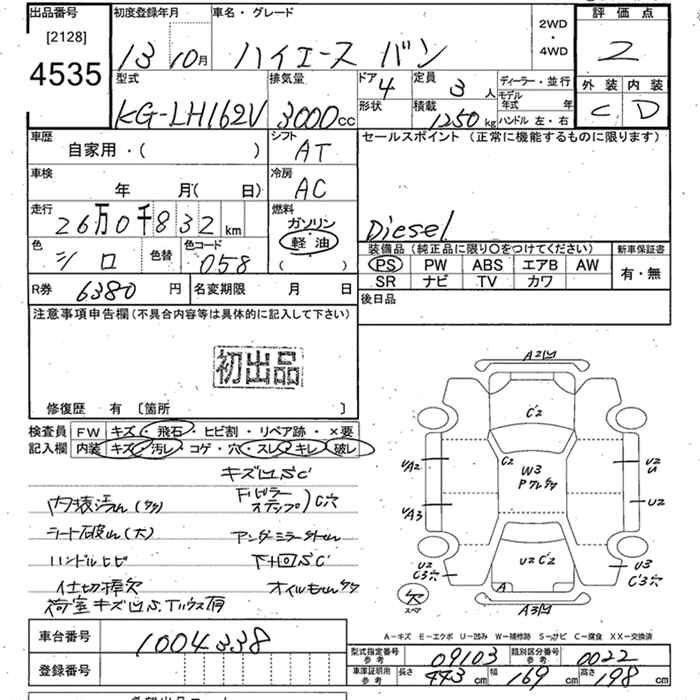 出品番号 初度登録年月 車名・グレード 評価点
[2128]
4535
13 10月 ハイエース バン 2WD・4WD 2
外装 内装
C D
型式 排気量 ドア 定員 ディーラー・並行
KG-LH162V 3000cc 4 3人 モデル年式 年
形状 積載 1250kg ハンドル 左・右
車歴 シフト セールスポイント (正常に機能するものに限ります)
自家用・( ) AT
車検 冷房
年 月( 日) AC
走行 燃料
26万0千832km ガソリン
軽油
( )
Diesel
色 色替 色コード
シロ 058
装備品 (純正品に限り○をつけてください) 新車保証書
PS PW ABS エアB AW 有・無
SR ナビ TV カワ
R券 6380円 名変期限 月 日 後日品
注意事項申告欄(不具合内容等は具体的に記入して下さい)
初出品
修復歴 有 〔箇所 〕
検査員 FW キズ・飛石・ヒビ割・リペア跡・×要
記入欄 内装 キズ・汚レ・コゲ・穴・スレ・キレ・破レ
キズ凹S.C
シート破れ(大) アンダーミラー
ハンドルヒビ 下廻S.C
仕切棒欠
荷室キズ凹S.
A2凹
C'2
C2 W3
P
UA2 U2
UA3 U2
U2 U2 C'2 U3
C'3穴 C'3穴
A
欠
スペア
A3凹
A-キズ E-エクボ U-凹み W-補修跡 S-サビ C-腐食 XX-交換済
車台番号 1004338
登録番号
型式指定番号参考 09103 類別区分番号参考 0022
車庫証明用参考 長さ 443cm 幅 169cm 高さ 198cm